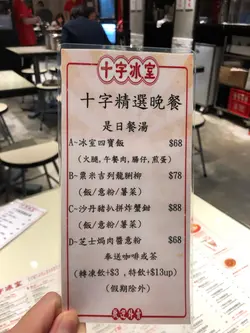 十字冰室
十字精選晚餐
是日餐湯
A-冰室四寶飯 $68
(火腿,午餐肉,腸仔,煎蛋)
B-粟米吉列龍脷柳 $78
(飯/意粉/薯菜)
C-沙丹豬扒拼炸蟹鉗 $88
(飯/意粉/薯菜)
D-芝士焗肉醬意粉 $68
奉送咖啡或茶
(轉凍飲+$3,特飲+$13up)
(假期除外)
歡迎外賣